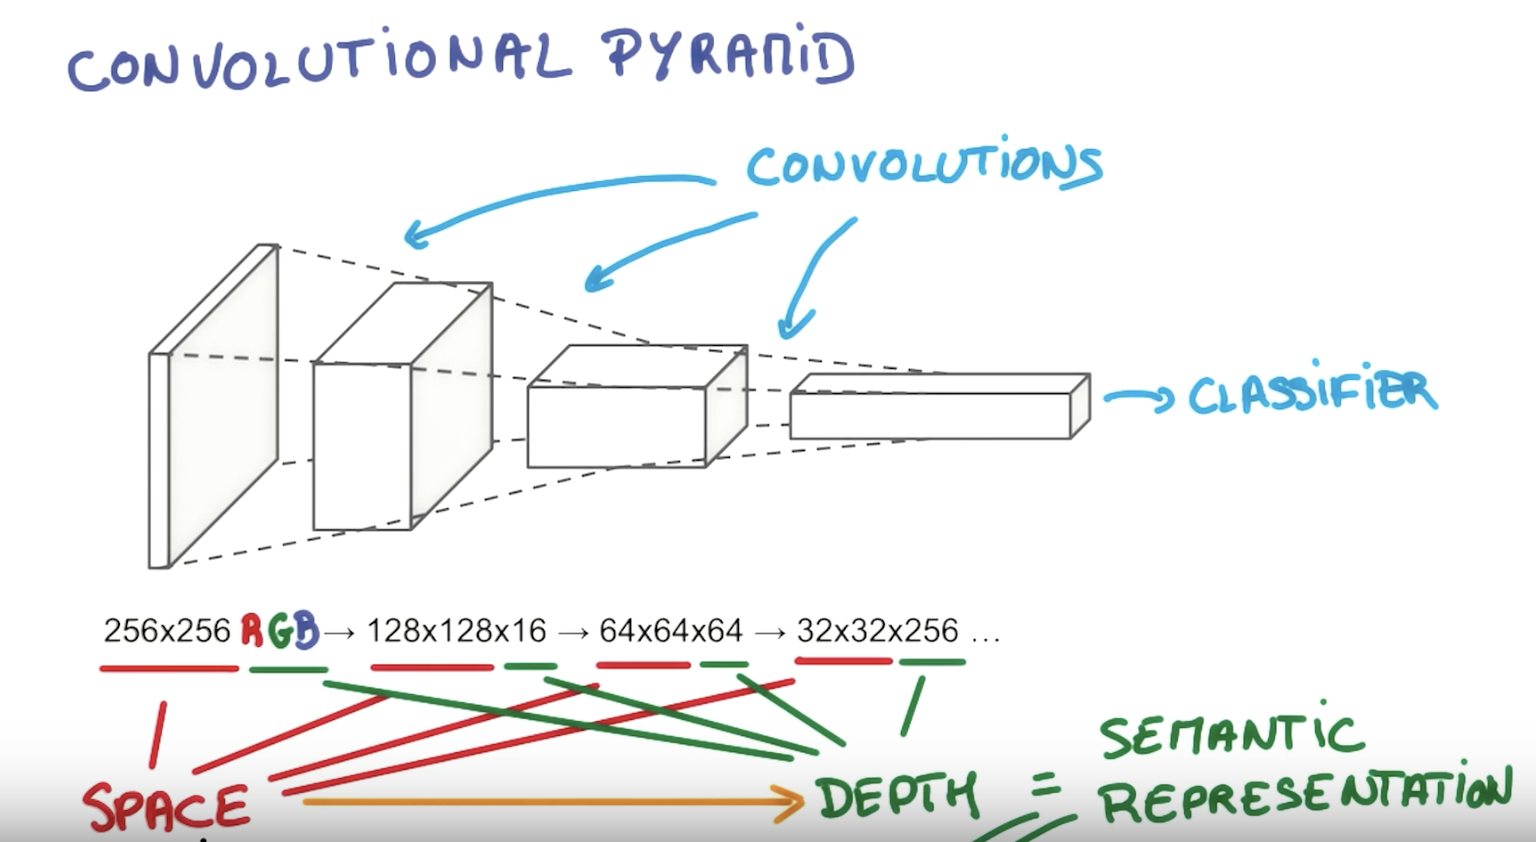 CONVOLUTIONAL PYRAMID
CONVOLUTIONS
→ CLASSIFIER
256x256 RGB → 128x128x16 → 64x64x64 → 32x32x256 ...
SEMANTIC
SPACE → DEPTH = REPRESENTATION